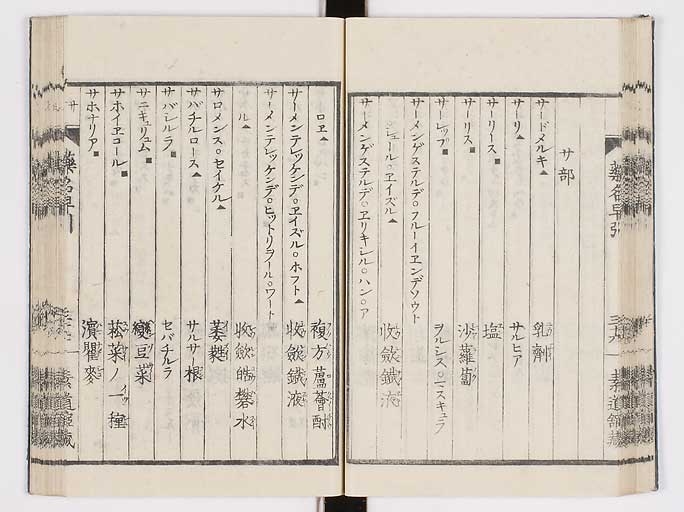 サ部
サードメルキ▲ 乳劑
サーリ▲ サルヒア
サーリース■ 塩
サーリス■ 沙蘿蔔
サーレップ■ ヲルシス○ミスキュラ
サーメンゲステルデ○フルーイヱンデソウト
シュール○ヱイズル▲ 收斂鐵液
サーメンゲステルデ○ヱリキシル○ハン○ア
ロヱ▲ 複方蘆薈酊
サーメンテレッケンデ○ヱイズル○ホフト▲ 收斂鐵液
サーメンテレッケンデ○ヒットリヲール○ワート
ル▲ 收斂皓礬水
サロメンス○セイゲル▲ 萎蕤
サバチルロース▲ サルサー根
サバシルラ■ セバチルラ
サニキュリュム■ 變豆菜
サホイヱコール■ 菘菜ノ一種
サホナリア■ 瀉瞿麥
藥名早引
素道館藏